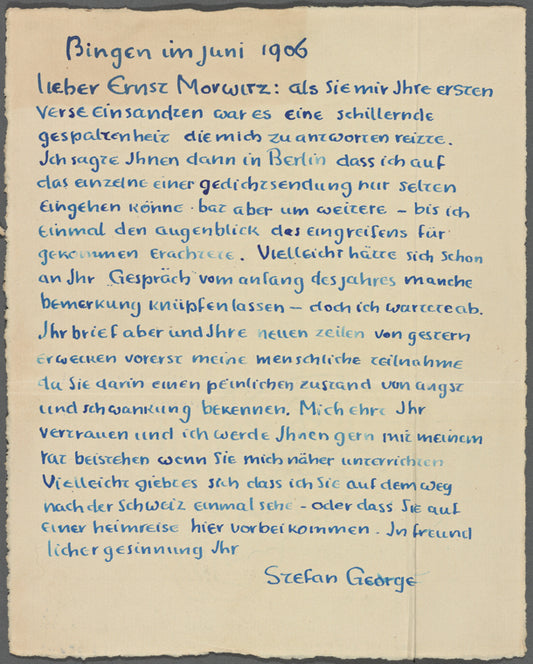 Bingen im Juni 1906
lieber Ernst Morwitz: als Sie mir Ihre ersten
verse einsandten war es eine schillernde
gespaltenheit die mich zu antworten reizte.
Ich sagte Ihnen dann in Berlin dass ich auf
das einzelne einer gedichtsendung nur selten
eingehen könne · bat aber um weitere – bis ich
einmal den augenblick des eingreifens für
gekommen erachtete. Vielleicht hätte sich schon
an Ihr Gespräch vom anfang des jahres manche
bemerkung knüpfen lassen – doch ich wartete ab.
Ihr brief aber und Ihre neuen zeilen von gestern
erwecken vorerst meine menschliche teilnahme
da Sie darin einen peinlichen zustand von angst
und schwankung bekennen. Mich ehrt Ihr
vertrauen und ich werde Ihnen gern mit meinem
rat beistehen wenn Sie mich näher unterrichten
Vielleicht giebt es sich dass ich Sie auf dem weg
nach der Schweiz einmal sehe – oder dass Sie auf
einer heimreise hier vorbeikommen. In freund
licher gesinnung Ihr
Stefan George